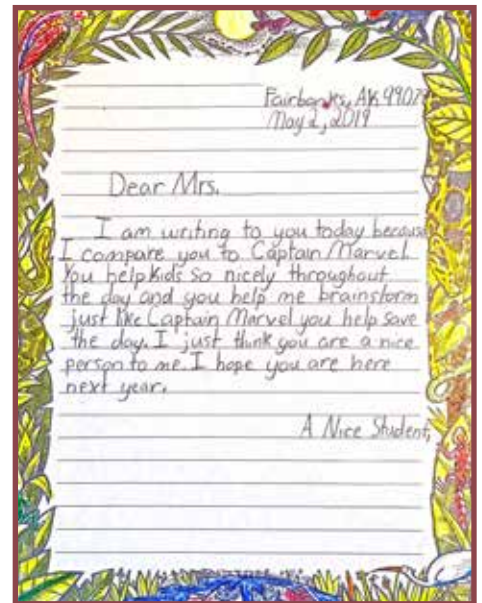 Fairbanks, AK 99079
May 2, 2019
Dear Mrs.
I am writing to you today because
I compare you to Captain Marvel.
You help kids so nicely throughout
the day and you help me brainstorm
just like Captain Marvel you help save
the day. I just think you are a nice
person to me. I hope you are here
next year.
A Nice Student,